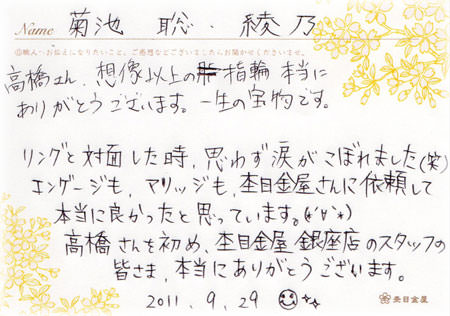 Name 菊池 聡・綾乃
◎職人へお伝えになりたいこと、ご感想などございましたらお聞かせくださいませ。
高橋さん、想像以上の指輪本当に
ありがとうございます。一生の宝物です。
リングと対面した時、思わず涙がこぼれました(笑)
エンゲージも、マリッジも、杢目金屋さんに依頼して
本当に良かったと思っています。(*'∀'*)
高橋さんを初め、杢目金屋 銀座店のスタッフの
皆さま、本当にありがとうございます。
2011.9.29
杢目金屋